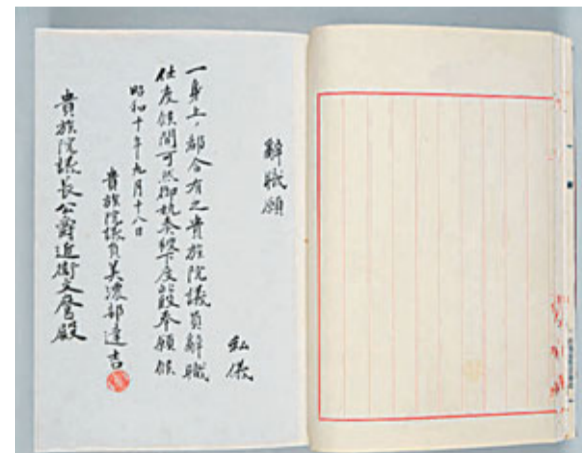 辭職願
私儀
一身上ノ都合有之貴族院議員辭職
仕度候間可然御執奏被下度此段奉願候
昭和十年九月十八日
貴族院議員美濃部達吉
貴族院議長公爵近衛文麿殿